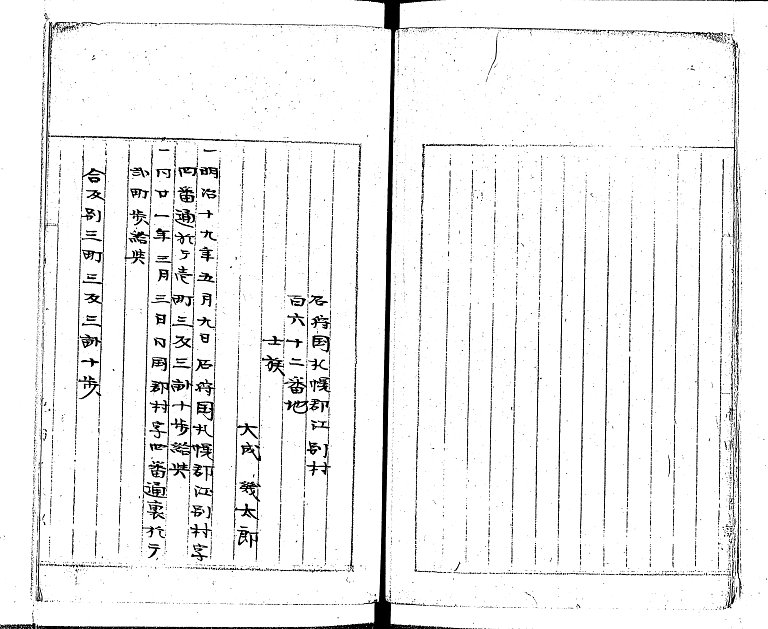 石狩国札幌郡江別村
百六十二番地
士族
大成幾太郎
一明治十九年五月九日石狩国札幌郡江別村字
四番通於テ壱町三反三畝十歩給与
一同廿一年三月三日同国郡村字四番通裏於テ
弐町歩給与
合反別三町三反三畝十歩